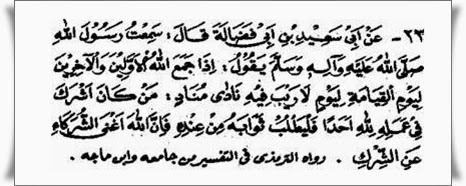 ٢٣- عَنْ أَبِي سَعِيدِ بْنِ أَبِي فَضَالَةَ قَالَ: سَمِعْتُ رَسُولَ اللهِ
صَلَّى اللهُ عَلَيْهِ وَآلِهِ وَسَلَّمَ يَقُولُ: إِذَا جَمَعَ اللهُ الْأَوَّلِينَ وَالْآخِرِينَ
لِيَوْمِ الْقِيَامَةِ لِيَوْمٍ لَا رَيْبَ فِيهِ نَادَى مُنَادٍ: مَنْ كَانَ أَشْرَكَ
فِي عَمَلِهِ لِلهِ أَحَدًا فَلْيَطْلُبْ ثَوَابَهُ مِنْ عِنْدِهِ فَإِنَّ اللهَ أَغْنَى الشُّرَكَاءِ
عَنِ الشِّرْكِ. رواه الترمذى فى التفسير من جامعه وابن ماجه.